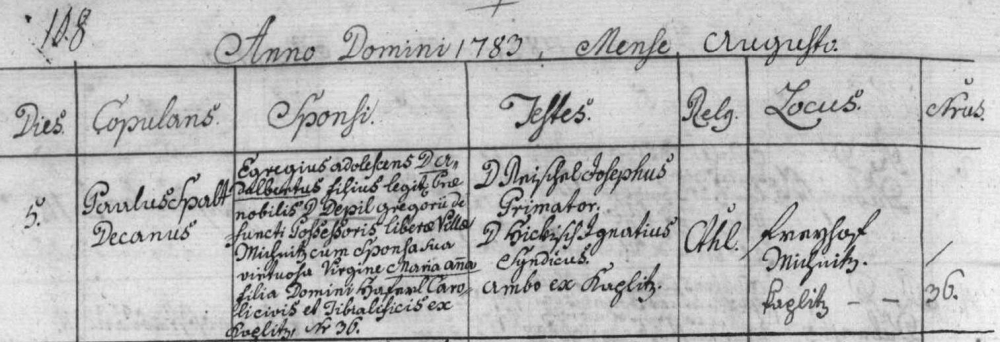 108
Anno Domini 1783, Mense Augusto.
Dies. Copulans. Sponsi. Testes. Relg. Locus. Nrus.
5.
Paulus Spalt
Decanus
Egregius adolescens D A,,
dalbertus filius legit, Præ
nobilis D Depil gregorii de
functi Possessoris liberæ Villæ
Michnitz cum Sponsa sua
virtuosa Virgine Maria aña
filia Domini Haferl Caro,,
li civis et Tibialificis ex
Kaplitz, Nr 36.
D Reischel Josephus
Primator.
D Hickisch Ignatius
Syndicus.
ambo ex Kaplitz.
Cthl.
Freyhof
Michnitz. /
Kaplitz – – 36.